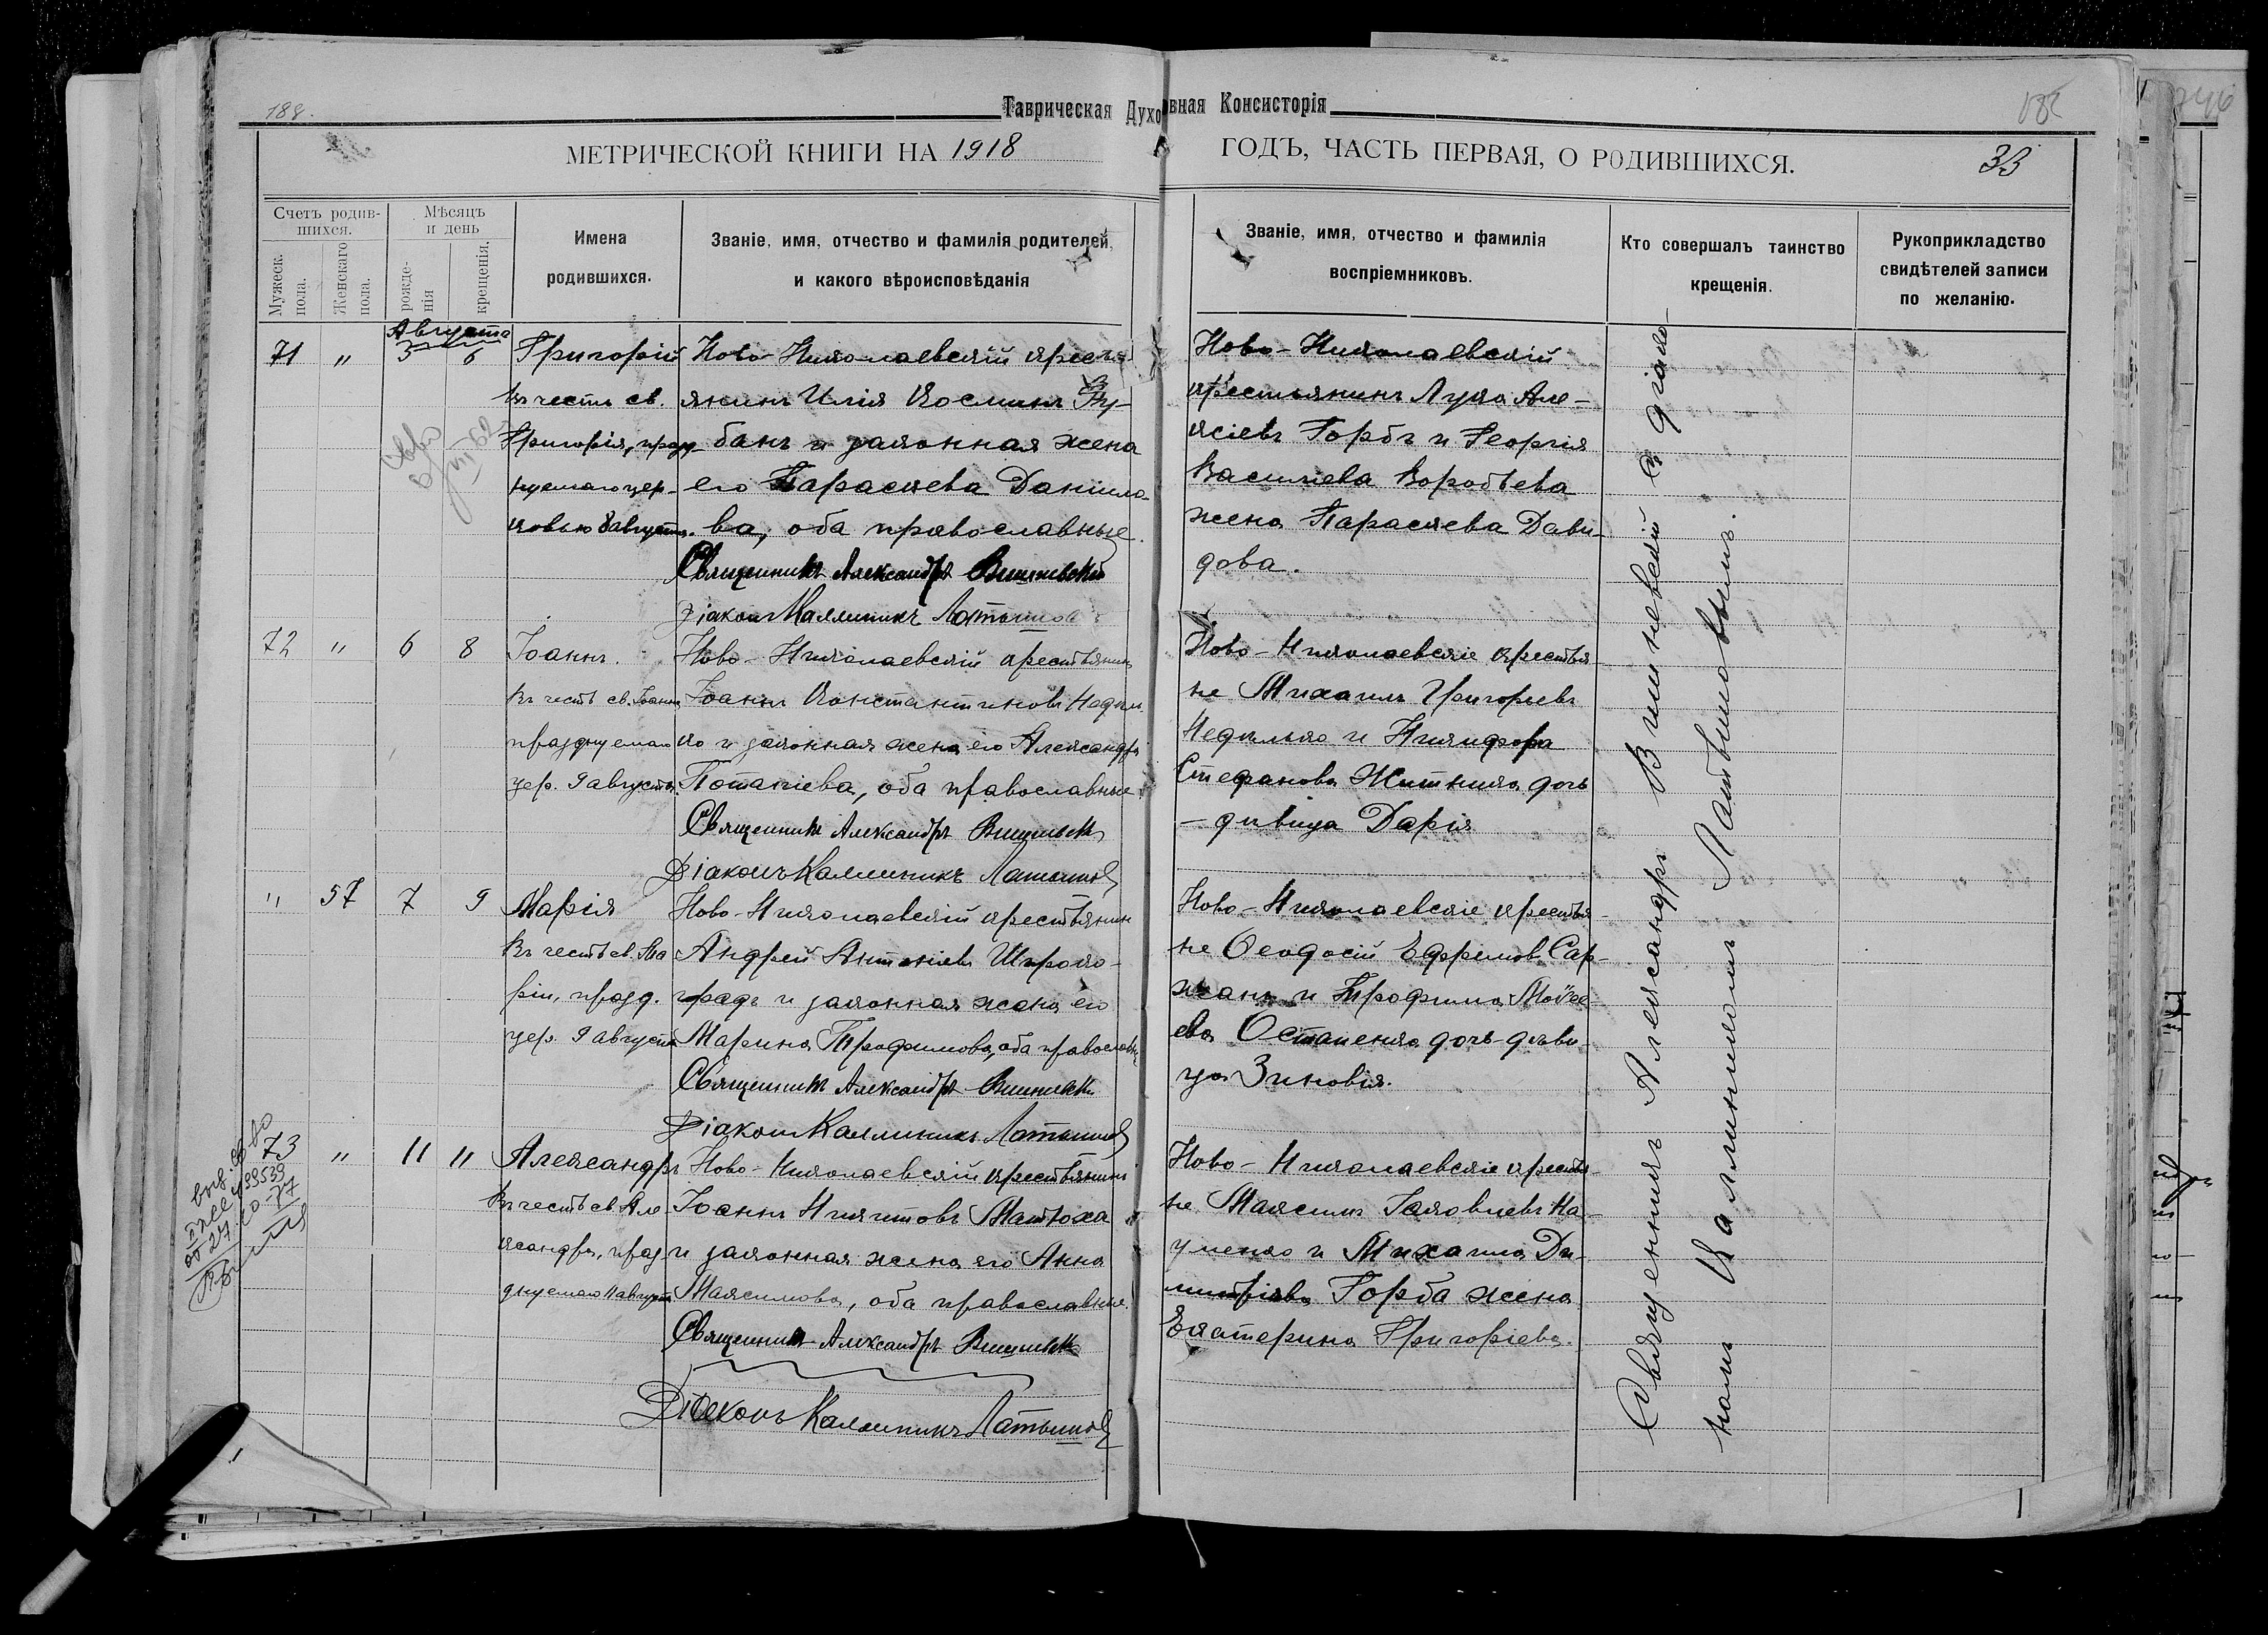 188.
Таврическая Духовная Консисторія
МЕТРИЧЕСКОЙ КНИГИ НА 1918 ГОДЪ, ЧАСТЬ ПЕРВАЯ, О РОДИВШИХСЯ.
33
Счетъ родив-
шихся.
Мужеск.
пола.
Женскаго
пола.
Мѣсяцъ
и день
рожде-
нія
крещенія.
Имена
родившихся.
Званіе, имя, отчество и фамилія родителей,
и какого вѣроисповѣданія
Званіе, имя, отчество и фамилія
воспріемниковъ.
Кто совершалъ таинство
крещенія.
Рукоприкладство
свидѣтелей записи
по желанію.
Августа
71 " 5 6
Григорій
Въ честь св.
Григорія, празд-
нуемаго цер-
ковью 8 августа.
Ново-Николаевскій кресть-
янинъ Илія Косминъ
банъ и законная жена
его Параскева Данило-
ва, оба православные.
Священникъ Александръ Вишневскій
Діаконъ Каллиникъ Латышов
Ново-Николаевскій
крестьянинъ Лука Але-
ксіевъ Горбъ и Георгія
Василіева Воробьева
жена Параскева Дави-
дова.
72 " 6 8
Іоаннъ.
Въ честь св. Іоанна
празднуемаго
цер. 9 августа.
Ново-Николаевскій крестьянинъ
Іоаннъ Константиновъ Недѣл
ко и законная жена его Александра
Потапіева, оба православные.
Священникъ Александръ Вишневск
Діаконъ Каллиникъ Латышов
Ново-Николаевскіе крестья-
не Михаилъ Григорьевъ
Недѣлько и Никифора
Стефанова Житника дочь
-дѣвица Дарія
" 57 7 9
Марія
Въ честь св. Ма
ріи, празд.
цер. 9 августа
Ново-Николаевскій крестьянин
Андрей Антоніевъ Широко-
градъ и законная жена его
Марина Трофимова, оба православны
Священникъ Александръ Вишневск
Діаконъ Каллиникъ Латышов
Ново-Николаевскіе крестья-
не Ѳеодосій Ефремовъ Сар-
жанъ и Трофима Моѵсе-
ева Остапенка дочь-дѣви-
ца Зиновія.
73 " 11 11
Александръ
Въ честь св. Але
ксандра, праз-
днуемаго 11 август
Ново-Николаевскій крестьянинъ
Іоаннъ Никитовъ Матюха
и законная жена его Анна
Максимова, оба православные.
Священникъ Александръ Вишневск
Діаконъ Каллиникъ Латышов
Ново-Николаевскіе крестья-
не Максимъ Іаковлевъ На-
уменко и Михаила Ди-
митріева Горба жена
Екатерина Григоріева.
Священникъ Александръ Вишневскій съ діако-
номъ Каллиникомъ Латышовымъ.